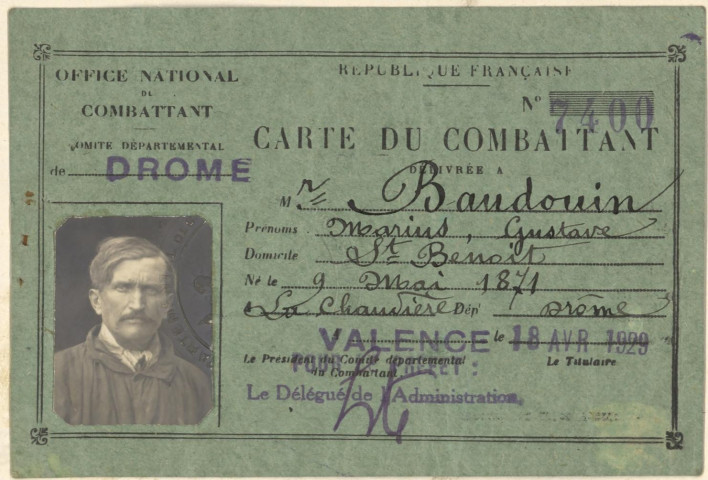 OFFICE NATIONAL
DU
COMBATTANT
COMITÉ DÉPARTEMENTAL
de DROME
RÉPUBLIQUE FRANÇAISE
N° 7400
CARTE DU COMBATTANT
DÉLIVRÉE A
Mr Baudouin
Prénoms Marius, Gustave
Domicile St Benoit
Né le 9 Mai 1871
à La Chaudière Dépt Drôme
VALENCE le 18 AVR 1929
Le Président du Comité départemental
du Combattant
Le Titulaire
Le Délégué de l'Administration,